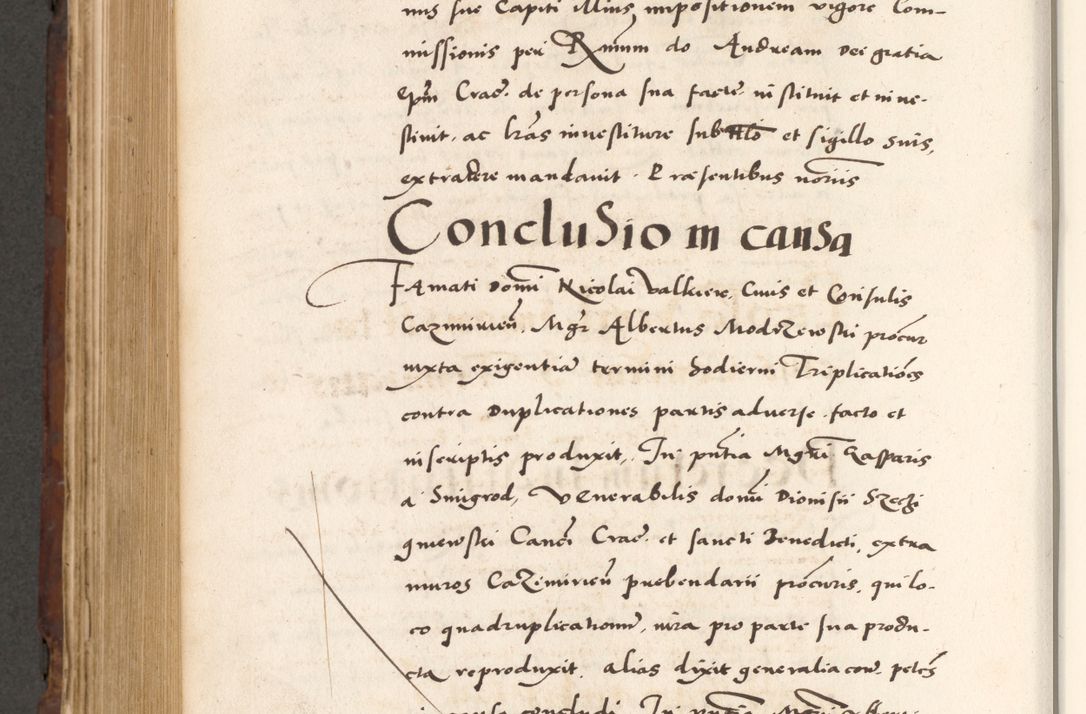 nis sue Capiti illius impositionem vigore Com-
missionis per Rmum do Andream Dei gratia
epm Crac. de persona sua facte instituit et inve-
stivit. ac lras investiture sub tlo et sigillo suis,
extradere mandavit. Præsentibus noriis
ConcluSio in causa
Famati Domi Nicolai Valkier, Civis et Consulis
Cazimirien, Mgr Albertus ModrZewski procur
iuxta exigentia termini hodierni Triplicatiões
contra Duplicationes partis adverse. facto et
in scriptis produxit, In pntia Mgri Gasparis
a Smigrod, VEnerabilis domi Dionisii Szeczi
gniewski Canci Crac. et sancti Benedicti, extra
muros CaZimirien prebendarii procuris, qui lo-
co quadruplicationu, iura pro parte sua produ-
cta reproduxit, alias dixit generalia con. petes
in causa concludi In pntia Mgri Alberti